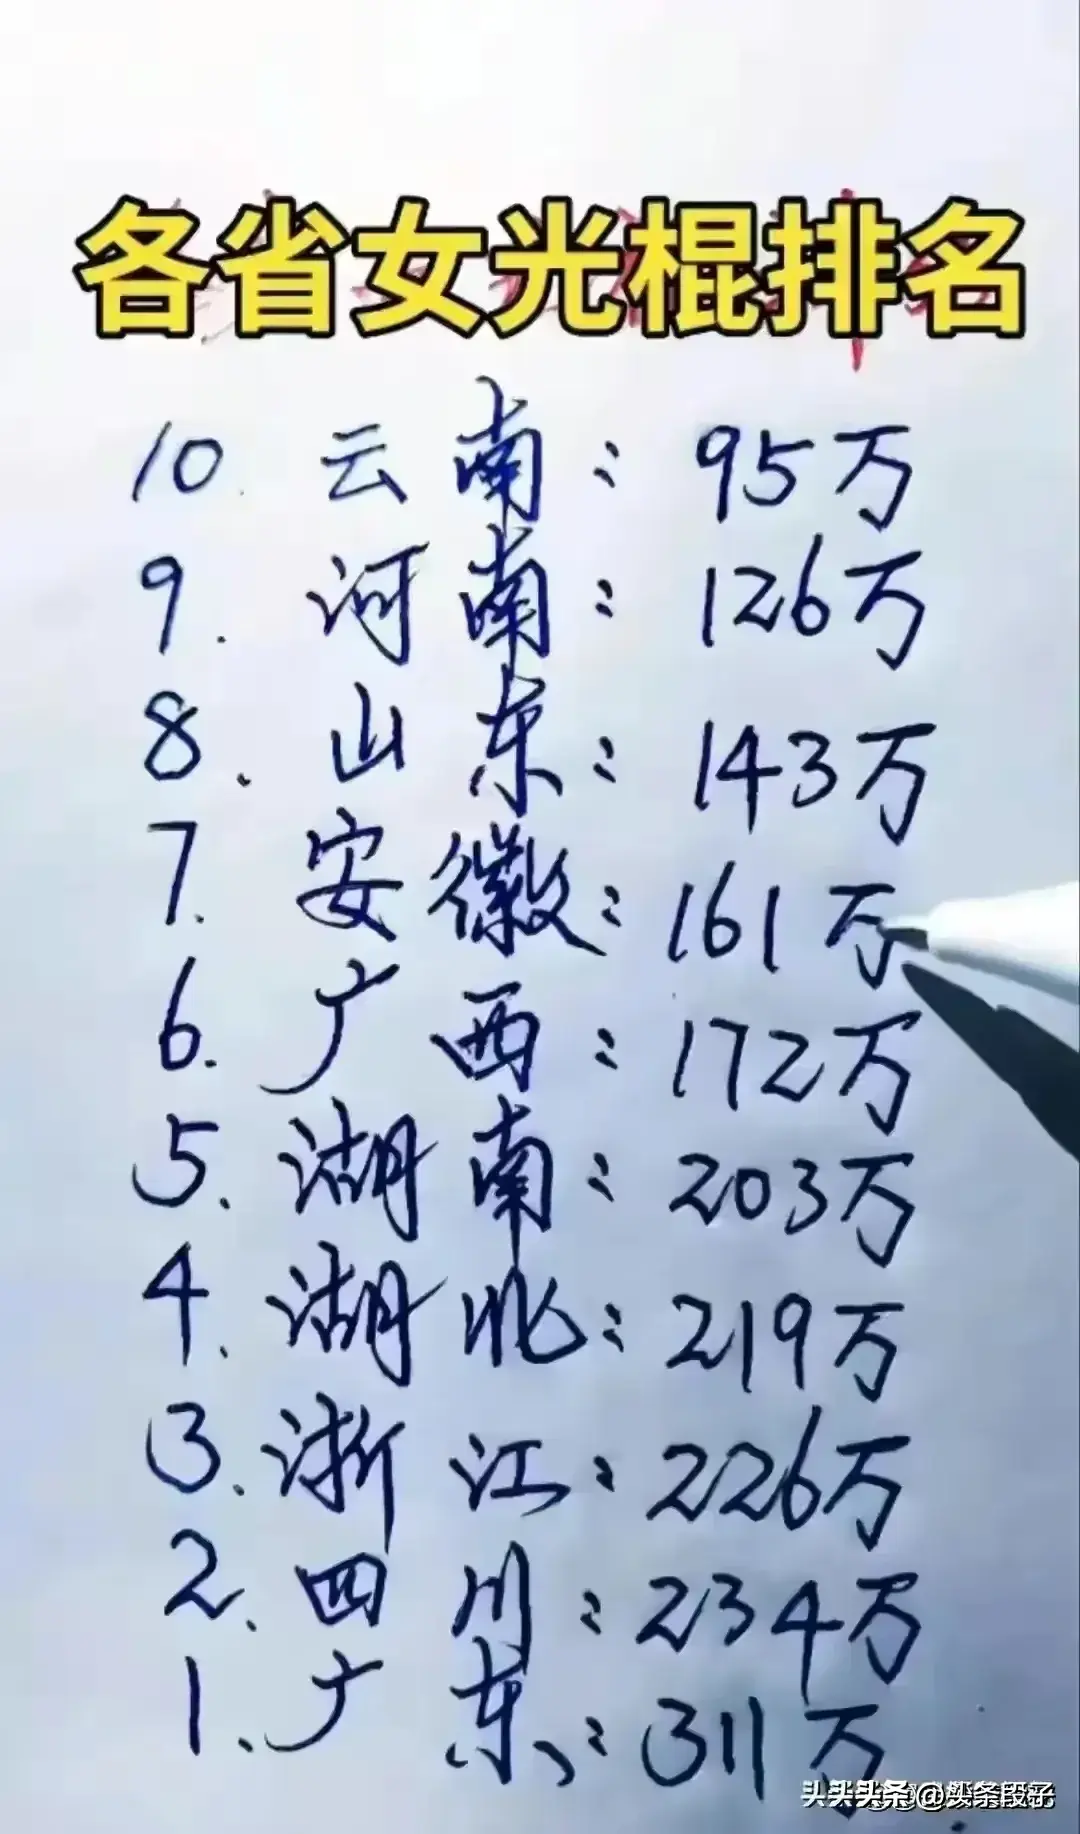 各省女光棍排名
10. 云南: 95万
9. 河南: 126万
8. 山东: 143万
7. 安徽: 161万
6. 广西: 172万
5. 湖南: 203万
4. 湖北: 219万
3. 浙江: 226万
2. 四川: 234万
1. 广东: 311万
头条 @头条段子